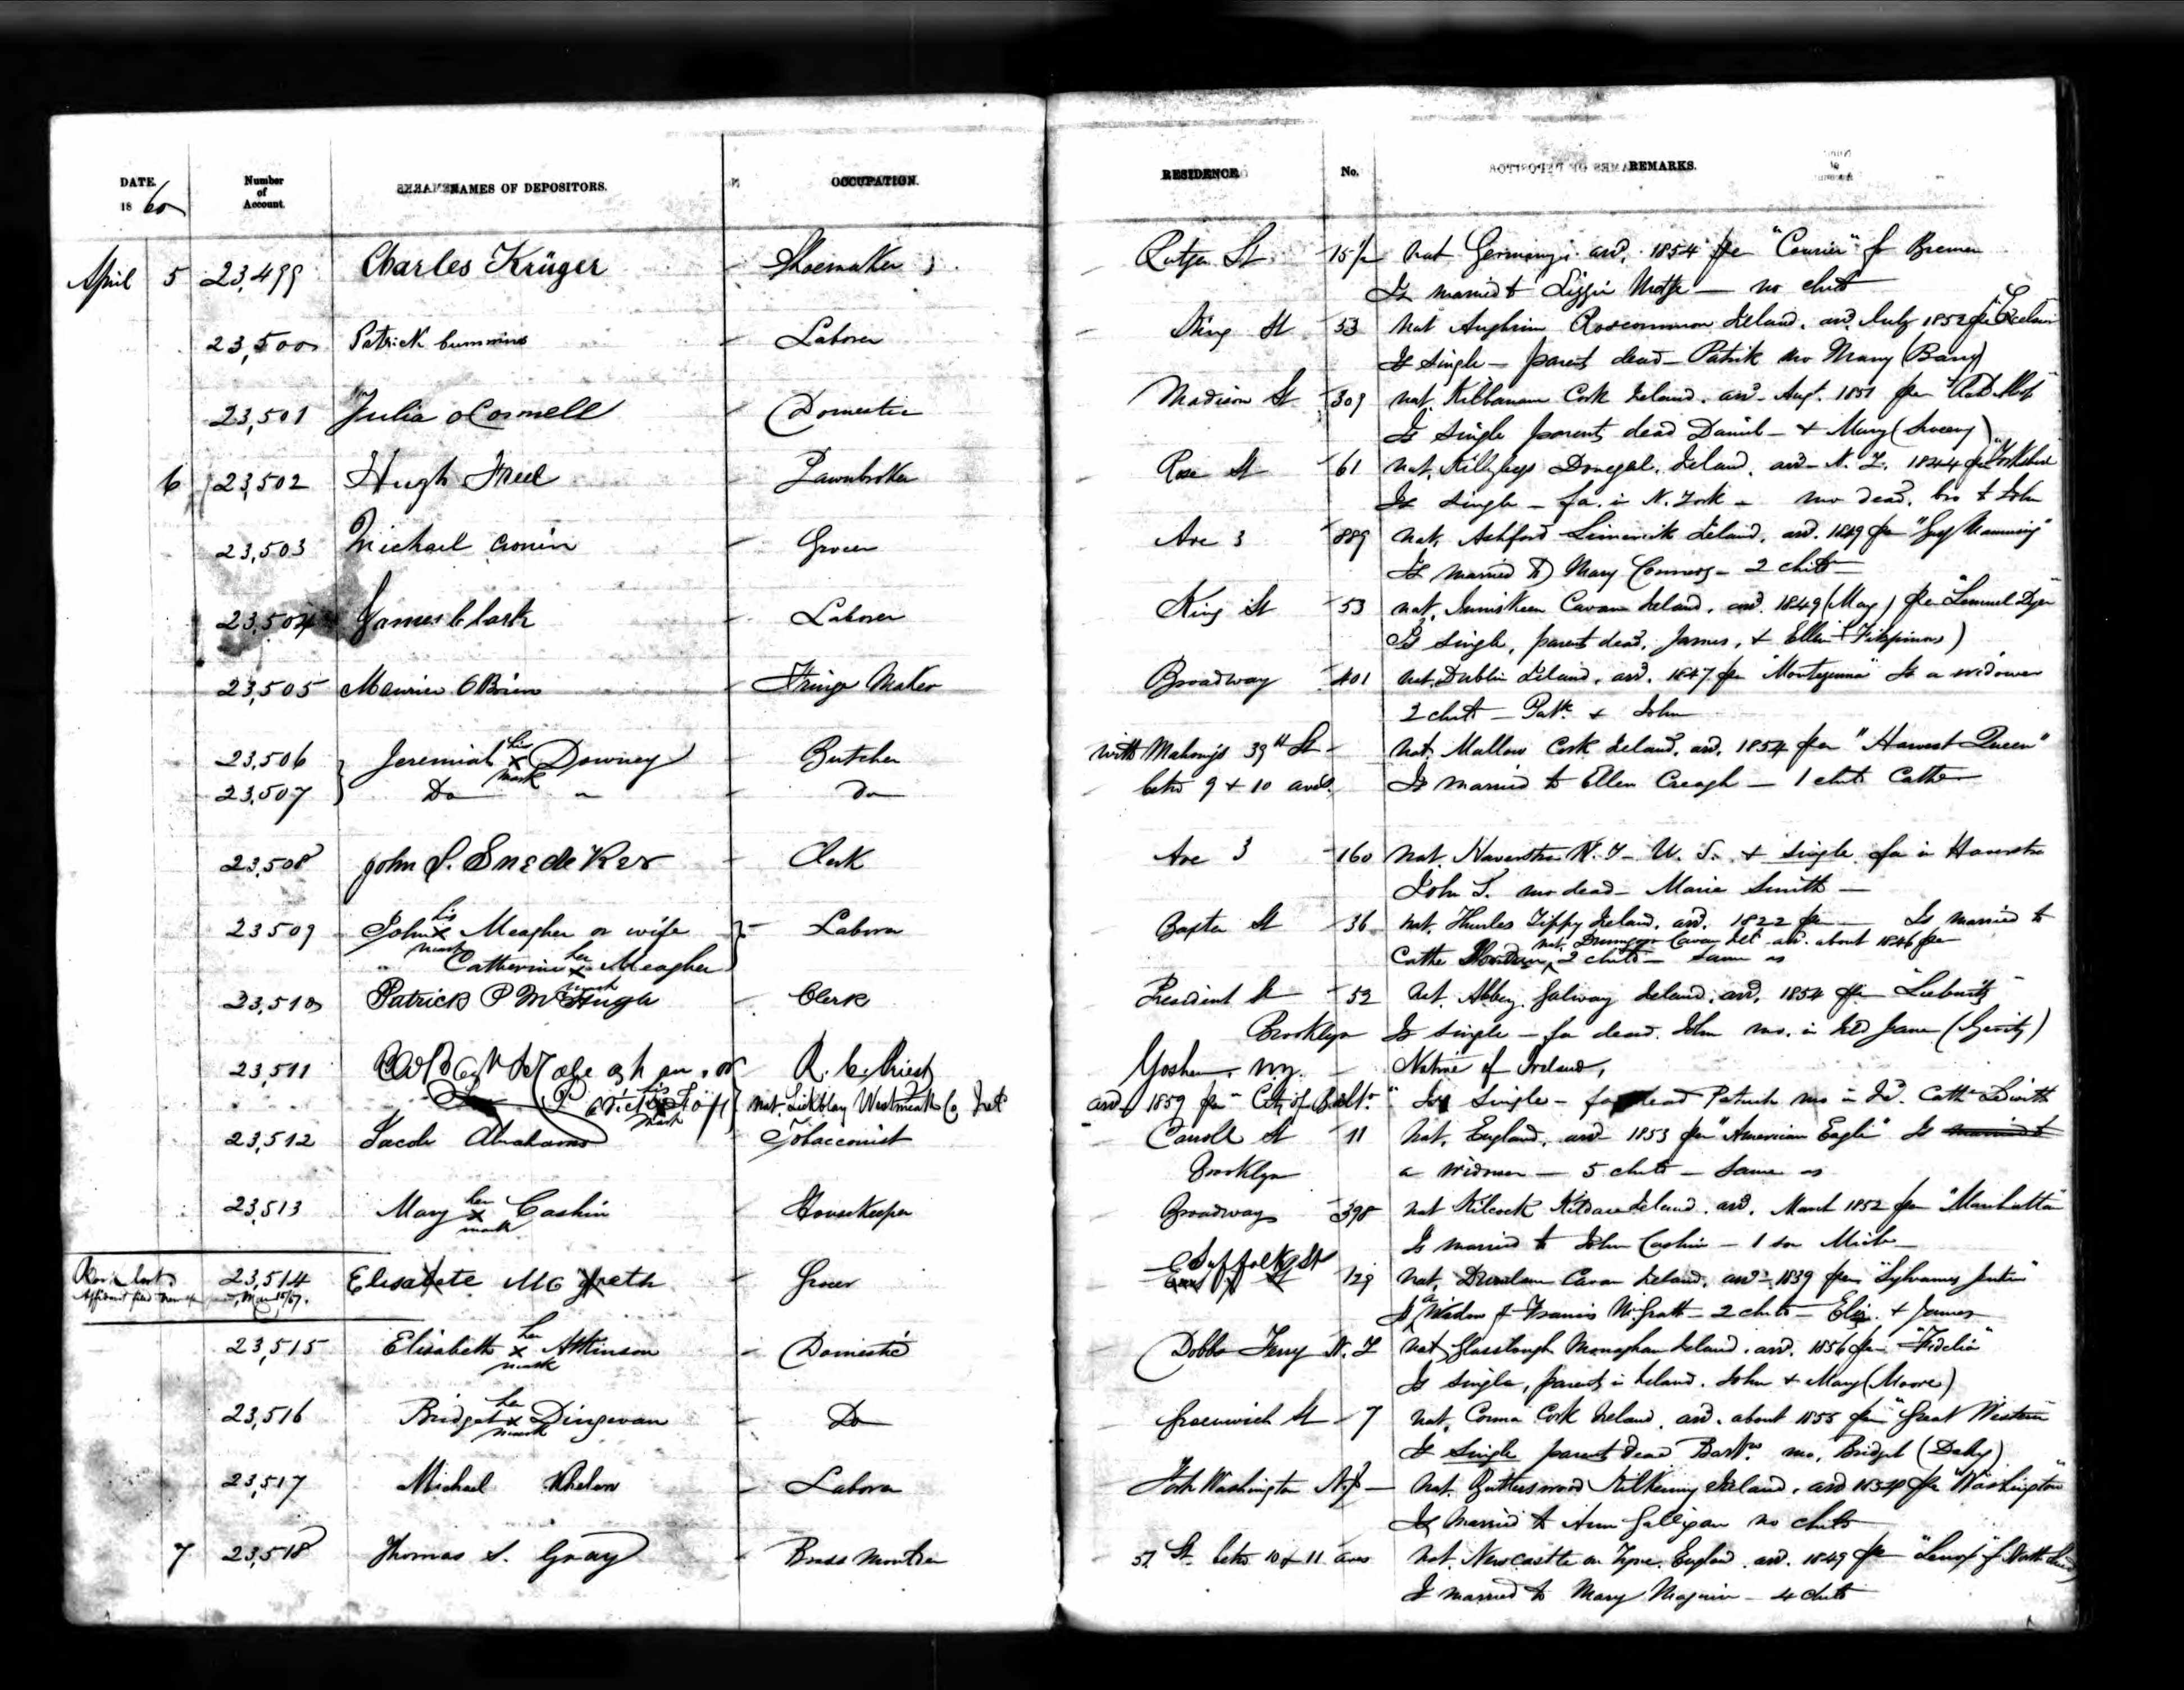 DATE. 1860
Number of Account.
NAMES OF DEPOSITORS.
OCCUPATION.
RESIDENCE
No.
REMARKS.
April 5 23,499 Charles Krüger Shoemaker Rutger St 15½ nat Germany. arrd. 1854 per "Courier" fr Bremen
Is married to Lizzie — no child
23,500 Patrick Cummins Laborer King St 53 nat Aughrim Roscommon Ireland. arrd. July 1852 per
Is single — parents dead — Patrick mo Mary (Barry)
23,501 Julia OConnell Domestic Madison St 309 nat. Cork Ireland. arrd. Augt. 1851 per
Is single parents dead Daniel — & Mary (Sweeny)
6 23,502 Hugh Freel Pawnbroker Rose St 61 nat. Killybegs Donegal. Ireland. arrd — N. Y. 1844 per "Yorkshire"
Is single — fa. in N. York — mo dead. bro to John
23,503 Michael Cronin Grocer Ave 3 889 nat. Ashford Limerick Ireland. arrd. 1849 per "Guy Mannering"
Is married to Mary Connors — 2 childn
23,504 James Clark Laborer King St 53 nat. Inniskeen Cavan Ireland. arrd. 1849 (May) per "Lemuel Dyer"
Is single, parents dead. James, & Ellen
23,505 Maurice OBrien Fringe Maker Broadway 401 nat. Dublin Ireland. arrd. 1847 per "Montezuma" Is a widower
2 childn — Patk. & John
23,506 Jeremiah his x mark Downey Butcher with Mahony's 39th St nat. Mallow Cork Ireland. arrd. 1854 per "Harvest Queen"
23,507 Do " Do betw 9 & 10 aves. Is married to Ellen Creagh — 1 child Cathe
23,508 John S. Snedeker Clerk Ave 3 160 nat. Haverstraw N. Y — U. S. & single fa in Haverstraw
John S. mo dead — Maria Smith —
23509 John his x mark Meagher or wife Laborer Baxter St 36 nat. Thurles Tippy Ireland. arrd. 1822 per — Is married to
" Catherine her x mark Meagher Cathe nat. Cavan Ied arrd. about 1846 per 2 childn — same as
23,510 Patrick P McHugh Clerk President St 52 nat. Abbey. Galway Ireland. arrd. 1854 per "Liebnitz"
Brooklyn Is single — fa dead. John mo. in Ied Jane
23,511 R. C. Priest Goshen. N.Y. — Native of Ireland,
his x mark nat. Westmeath Co Ired arrd 1859 per "City of Balto." Is Single — fa dead Patrick mo in Id. Cath
23,512 Jacob Abrahams Tobacconist Carroll St 11 nat. England. arrd 1853 per "American Eagle" Is married to
Brooklyn a widower — 5 childn — same as
23,513 Mary her x mark Cashin Housekeeper Broadway 398 nat Kilcock Kildare Ireland. arrd. March 1852 per "Manhattan"
Is married to John Cashin — 1 son Mich
Book lost. Affidavit filed
23,514 Elisabete Mc greth Grocer Suffolk St 129 nat. Cavan Ireland. arrd — 1839 per "Sylvanus Jenkins"
Is a Widow of Francis McGrath — 2 childn — Eliz. & James
23,515 Elisabeth her x mark Attkinson Domestic Dobbs Ferry N. Y nat. Glasslough Monaghan Ireland. arrd. 1856 per "Fidelia"
Is single, parents in Ireland. John & Mary (Moore)
23,516 Bridget her x mark Dingevan Do Greenwich St 7 nat. Cork Ireland. arrd. about 1855 per "Great Western"
Is single parents dead Bartw. mo. Bridget (Daly)
23,517 Michael Whelan Laborer Forth Washington N.Y — nat. Kilkenny Ireland. arrd 1834 per "Washington"
Is Married to Ann Galligan no childn
7 23,518 Thomas S. Gray Brass Moulder 52 St. betw 10 & 11 aves nat. Newcastle on Tyne. England. arrd. 1849 per
Is married to Mary Maguire — 4 childn